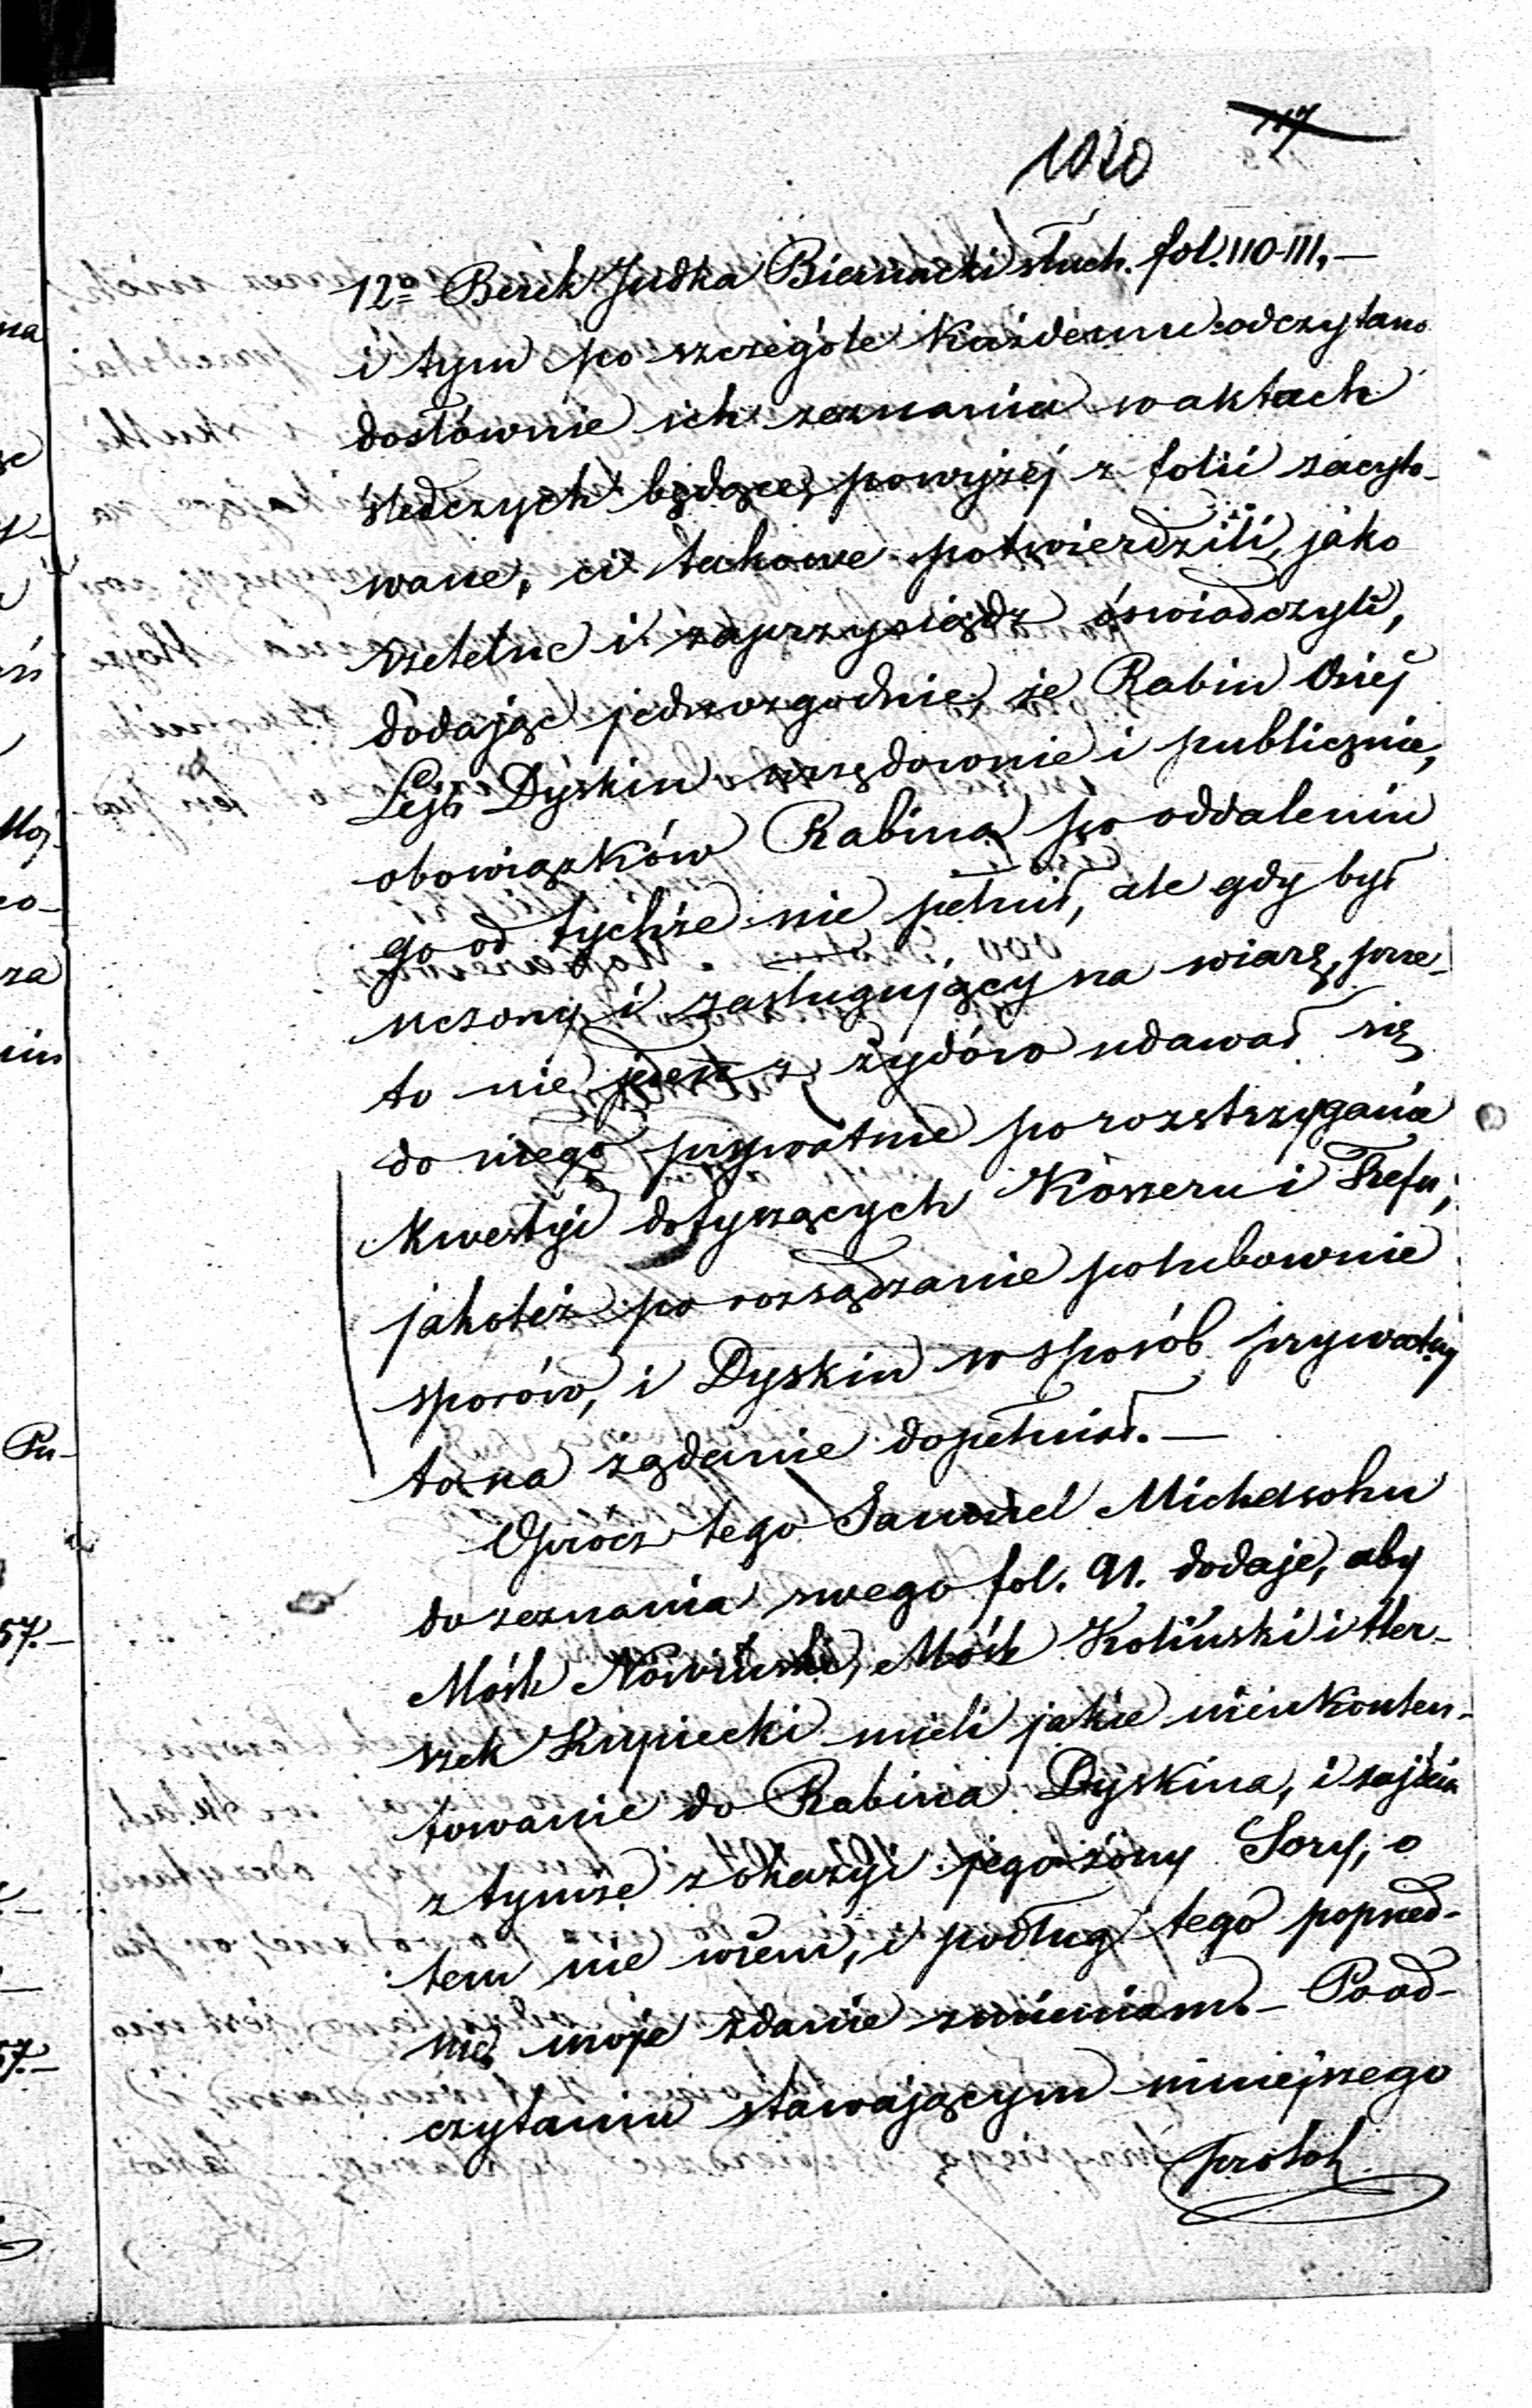 117
1020
12o Berek Judka Biernacki słuch. fol. 110-111, —
i tym po szczególe każdemu odczytano
dosłownie ich zeznania w aktach
śledczych będące, powyżej z folii zacyto-
wane, ci takowe potwierdzili, jako
rzetelne i zaprzysiądz oświadczyli,
dodając jednozgodnie, że Rabin Osiej
Lejb Dyskin urzędownie i publicznie,
obowiązków Rabina po oddaleniu
go od tychże nie pełnił, ale gdy był
uczony i zasługujący na wiarę, prze-
to nie jeden z żydów udawał się
do niego prywatnie po rozstrzygania
kwestyi dotyczących Koszeru i Trefu,
jakoteż po rozsądzanie polubownie
sporów, i Dyskin w sposób prywatny
to na żądanie dopełniał. —
Oprócz tego Samuel Michelsohn
do zeznania swego fol. 91. dodaje, aby
Mosk Nowiński, Mosk Koliński i Her-
szek Kupiecki mieli jakie nieukonten-
towanie do Rabina Dyskina, i zajścia
z tymże z okazyi jego żony Sory, o
tem nie wiem, i podług tego poprzed-
nie moje zdanie zmieniam. — Po od-
czytaniu stawającym niniejszego
protok
na
Moj
co-
za
Pu-
57. —
57. —